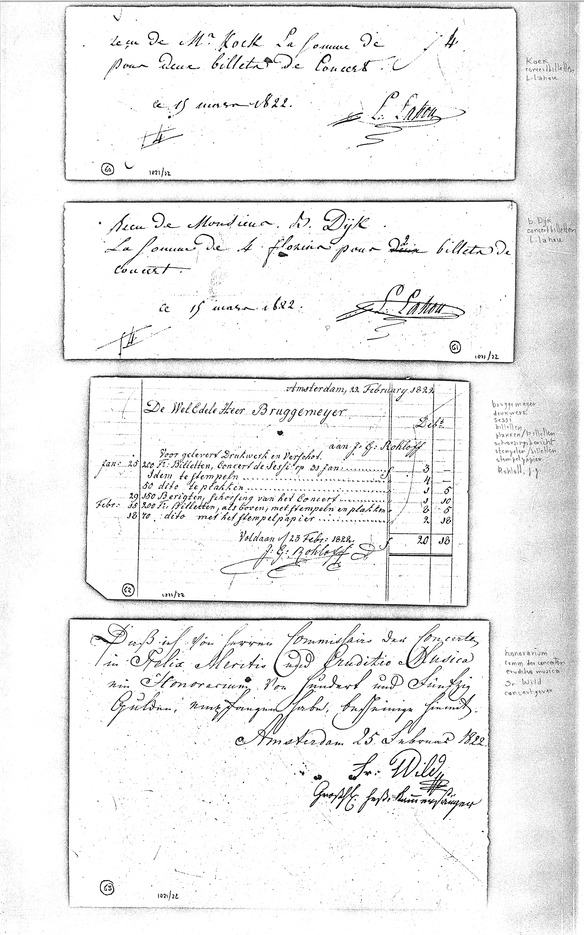 recu de Mr Kock La somme de ƒ 4
pour deux billets de Concert.
ce 15 mars 1822.
L. Lahou
ƒ4
60
1021/22
Koen
concertbilletten
L. Lahou
Recu de Monsieur. B. Dÿk
La somme de 4 florins pour billets de
concert.
ce 15 mars 1822.
L. Lahou
ƒ4
61
1021/22
b. Dijk
concertbilletten
L. Lahou
Amsterdam, 22 February 1822.
De WelEdele Heer Bruggemeyer
Debt
aan J. G. Rohloff
Voor geleverd Drukwerk en Verschot.
Jan: 25 200 Fr: Billetten, Concert de Sessi op 31 Jan: ƒ 3 —
Idem te stempelen 4 —
50 dito te plakken 1 5
29 150 Berigten, schorsing van het Concert 1 10
Febr: 15 200 Fr: Billetten, als boven, met stempelen en plakken 8 5
18 70 dito met het stempelpapier 2 18
Voldaan 23 Febr: 1822. ƒ 20 18
J. G. Rohloff
62
1021/22
bruggemeyer
drukwerk
sessi
billetten
plakken/billetten
schorsing bericht
stempelen/billetten
stempelpapier
Rohloff, j.g.
Daß ich von Herren Commissairs der Concerte
in Felix Meritis und Eruditio Musica
ein Honorarium von Hundert und Fünfzig
Gulden, empfangen habe, bescheinige hiemit.
Amsterdam 25. Februar 1822.
Fr: Wild
Großh. Heß: Kammersänger
63
1021/22
honorarium
comm. der concerten
eruditio musica
Fr. Wild
concertgever